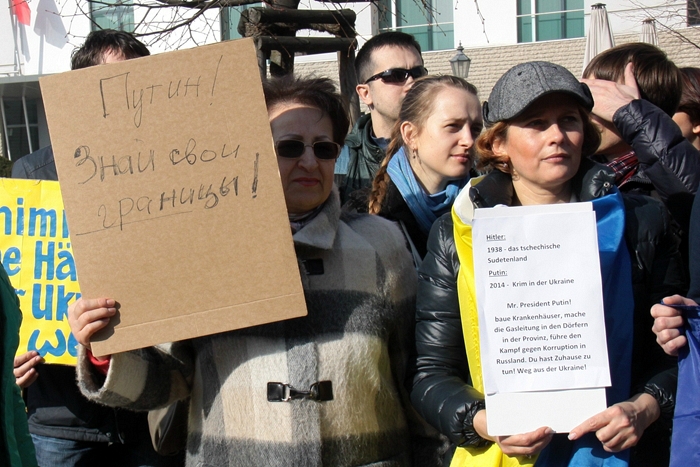 Путин!
Знай свои
границы!
nimm
Hä
Uk
we
Hitler:
1938 - das tschechische
Sudetenland
Putin:
2014 - Krim in der Ukraine
Mr. President Putin!
baue Krankenhäuser, mache
die Gasleitung in den Dörfern
in der Provinz, führe den
Kampf gegen Korruption in
Russland. Du hast Zuhause zu
tun! Weg aus der Ukraine!